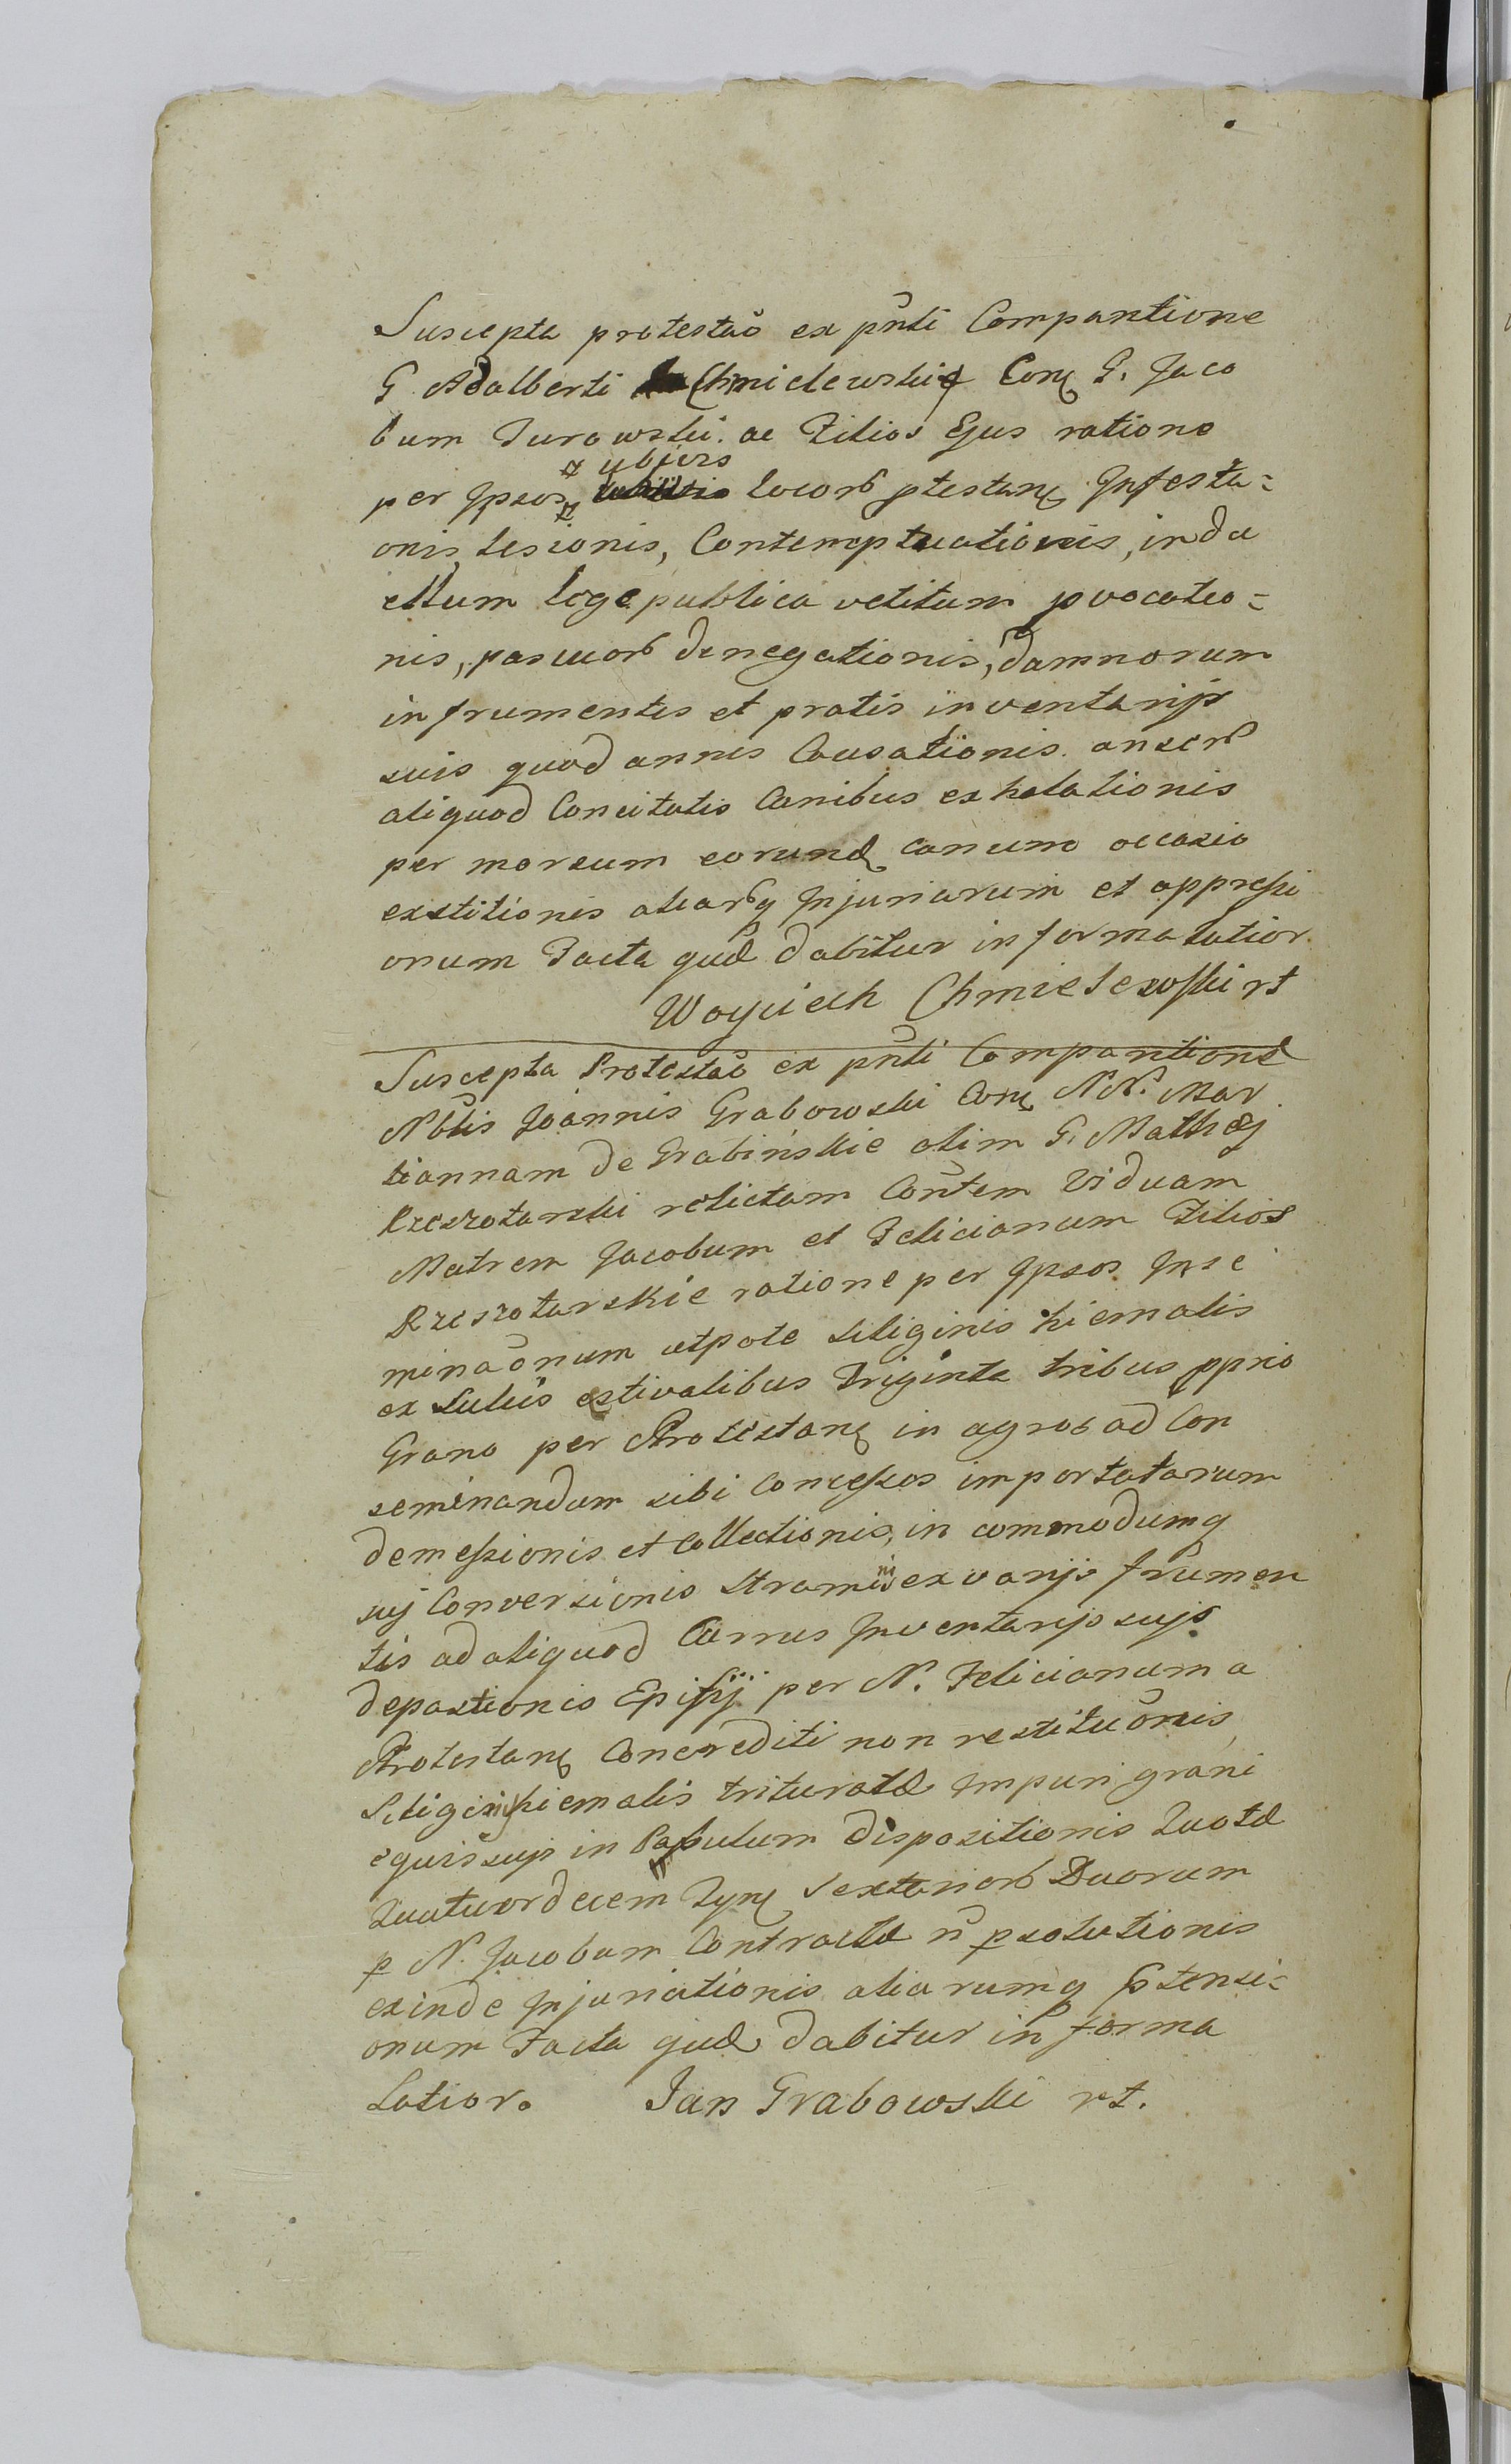 Suscepta protestaõ ex pñti Comparitione
G Adalberti Chmielewski Conq G. Jaco
bum Turowski. ac Filios Ejus ratione
ubivis
per Ipsos locorb ptestanq Infesta=
onis, Lesionis, Contemptuationis, in du
ellum lege publica vetitum pvocatio=
nis, pascuorb denegationis, damnorum
in frumentis et pratis inventarijs
suis quod annis Causationis. anserb
aliquod Concitatis Canibus exhalationis
per morsum eorundq canum occasio
exstitionis aliarbq Injuriarum et oppressi
onum Facta quæ dabitur in forma latior.
Woyciech Chmielewski rt
Suscepta Protestaõ ex pñti Comparitione
Nblis Joannis Grabowski Conq NN. Mar
riannam de Grabińskie olim G. Mathæj
Rzeszotarski relictam Cõntem Viduam
Matrem Jacobum et Felicianum Filios
Rzeszotarskie ratione per Ipsos Inse
minaõnum utpote siliginis hiemalis
ex sulcis æstivalibus Triginta tribus pprio
Grano per Protestanq in agros ad Con
seminandum sibi Concessos importatarum
demessionis et Collectionis, in commodumq
suj Conversionis straminis ex varijs frumen
tis ad aliquod Currus Inventarijs sujs
depastionis Ephipij per N. Felicianum a
Protestanq Concrediti non restituõnis,
Siliginis hiemalis trituratæ Impuri grani
equis sujs in Pabulum dispositionis Quotæ
Quatuordecem Tynq sextariorb Duorum
p N. Jacobum Contractæ ñ psolutionis
exinde Injuriationis aliarumq ptensi=
onum Facta quæ dabitur in forma
Latior. Jan Grabowski rt.